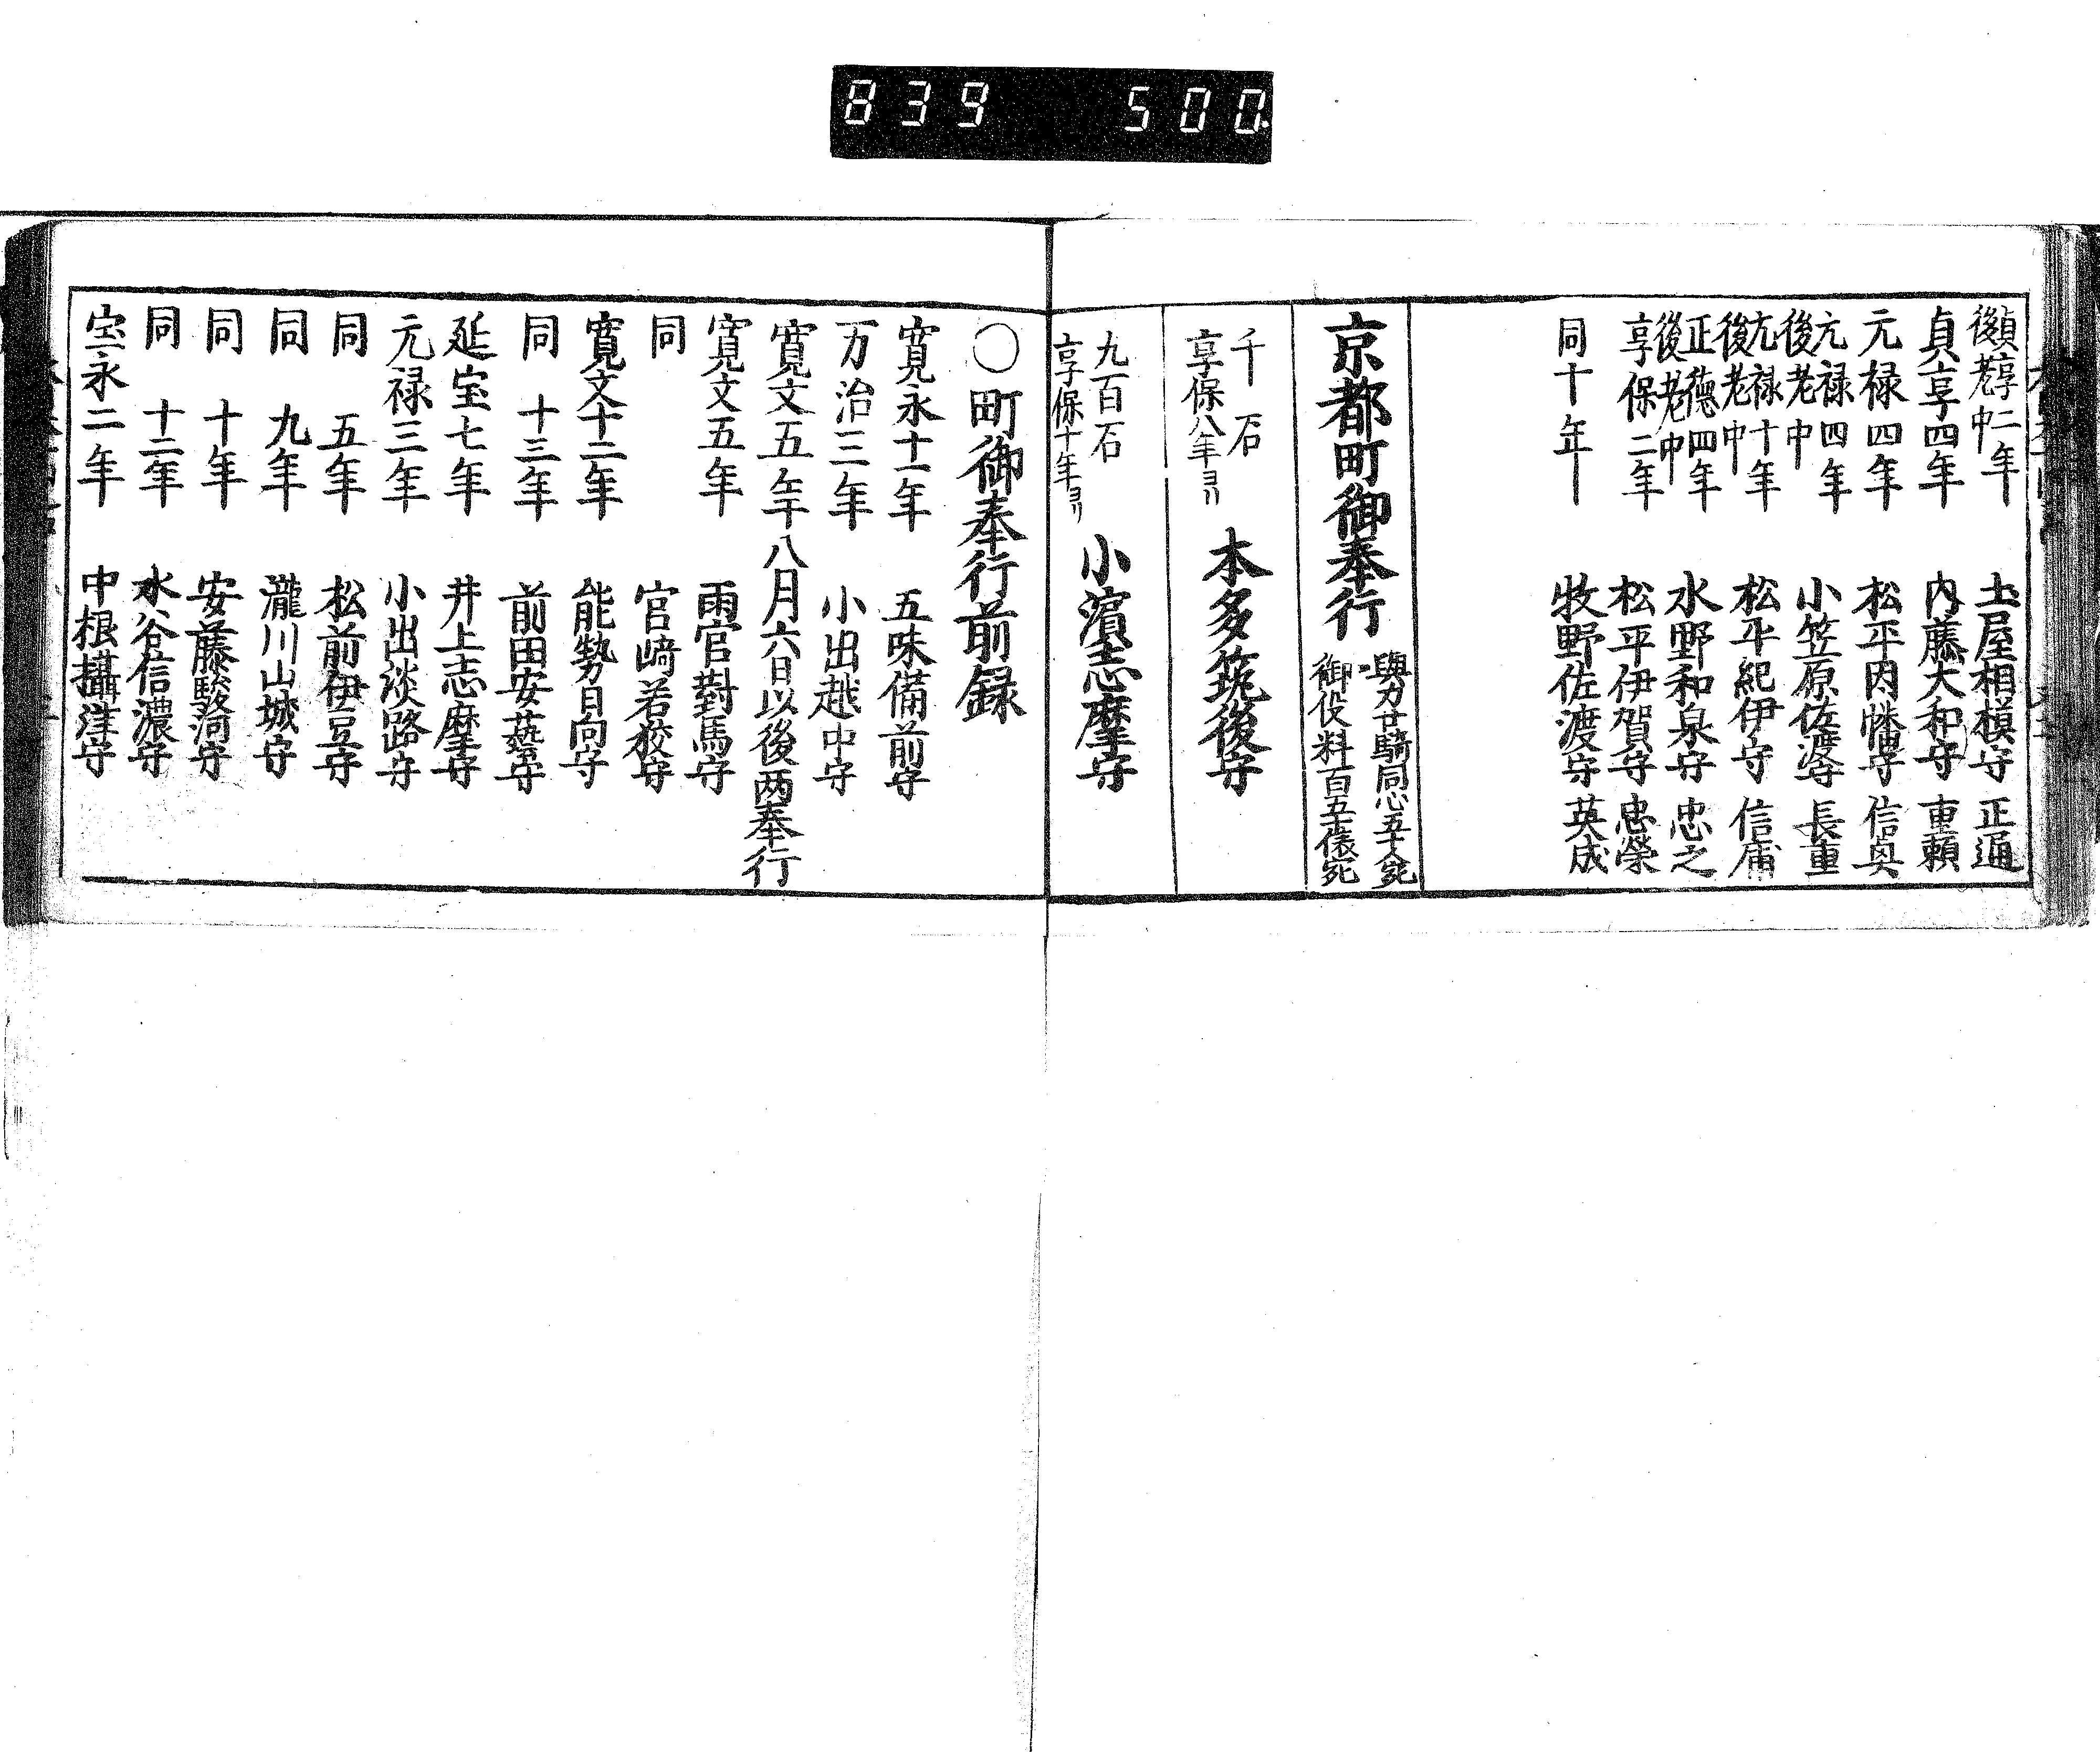 839 500
貞享二年 土屋相模守 正通
後老中
貞享四年 内藤大和守 重頼
元禄四年 松平因幡守 信興
元禄四年 小笠原佐渡守 長重
後老中
元禄十年 松平紀伊守 信庸
後老中
正徳四年 水野和泉守 忠之
後老中
享保二年 松平伊賀守 忠榮
同十年 牧野佐渡守 英成
京都町御奉行
與力廿騎同心五十人宛
御役料百五十俵宛
千石
享保八年ヨリ
本多筑後守
九百石
享保十年ヨリ
小濱志摩守
○町御奉行前録
寛永十一年 五味備前守
万治三年 小出越中守
寛文五年八月六日以後两奉行
寛文五年 雨宮對馬守
同 宮﨑若狡守
寛文十二年 能勢日向守
同 十三年 前田安藝守
延宝七年 井上志摩守
元禄三年 小出淡路守
同 五年 松前伊豆守
同 九年 瀧川山城守
同 十年 安藤駿河守
同 十二年 水谷信濃守
宝永二年 中根攝津守